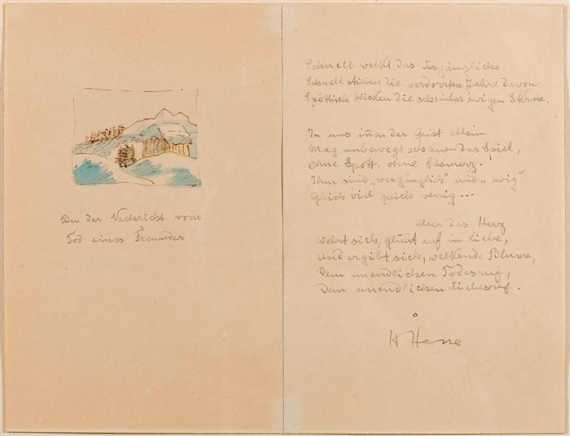 Bei der Nachricht vom
Tod eines Freundes
Schnell welkt das Vergängliche
Schnell stieben die verdorrten Jahre davon
Spöttisch blicken die scheinbar ewigen Sterne.
In uns innen der Geist allein
Mag unbewegt schauen das Spiel,
ohne Spott, ohne Schmerz.
Ihm sind „vergänglich" und „ewig"
Gleich viel gleich wenig ...
Aber das Herz
Wehrt sich, glüht auf in Liebe,
Und ergibt sich, welkende Blume,
Dem unendlichen Todesruf,
Dem unendlichen Liebesruf.
H Hesse